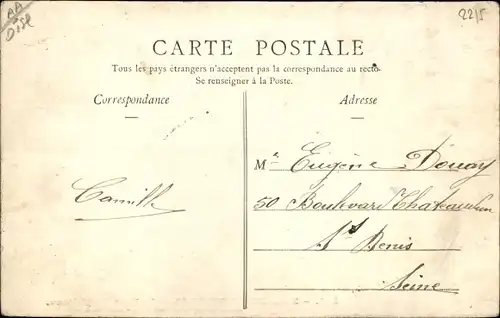 AA
Oise
22/5
CARTE POSTALE
Tous les pays étrangers n'acceptent pas la correspondance au recto-
Se renseigner à la Poste.
Correspondance
Adresse
Camille
Mr Eugène Douay
50 Boulevard Chateaudun
St Denis
Seine